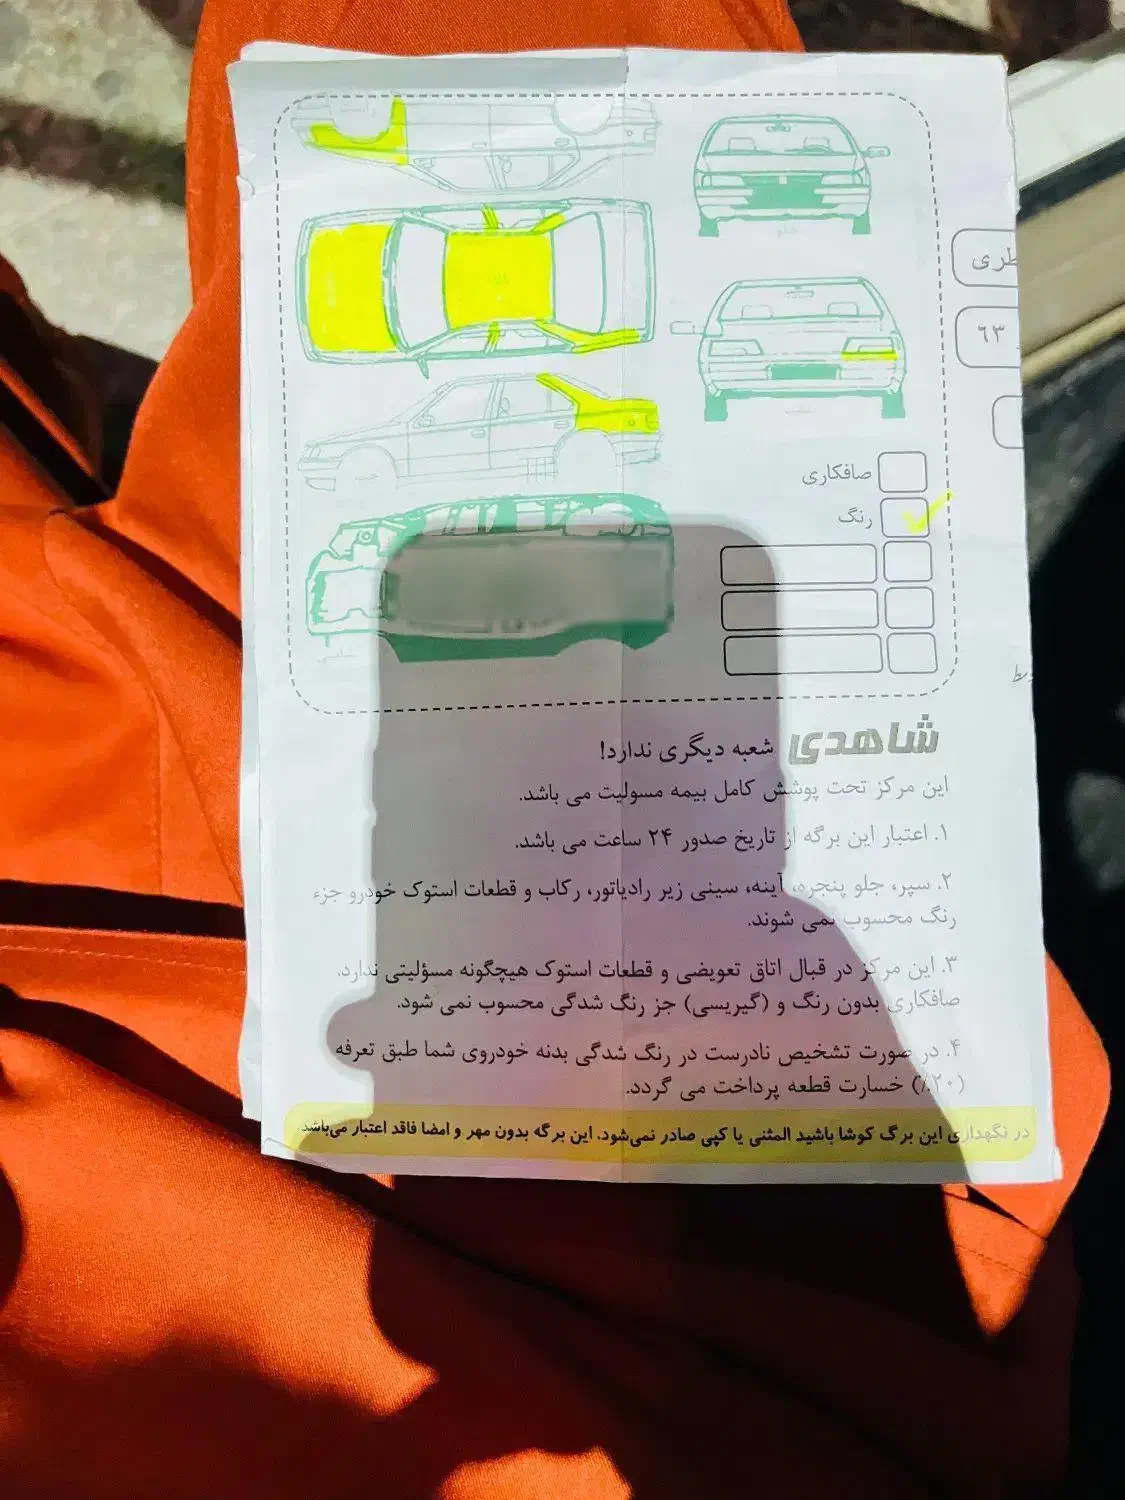 جلو
طری
۶۳
صافکاری
رنگ
شاسی
شاهدی شعبه دیگری ندارد!
این مرکز تحت پوشش کامل بیمه مسولیت می باشد.
۱. اعتبار این برگه از تاریخ صدور ۲۴ ساعت می باشد.
۲. سپر، جلو پنجره، آینه، سینی زیر رادیاتور، رکاب و قطعات استوک خودرو جزء
رنگ محسوب نمی شوند.
۳. این مرکز در قبال اتاق تعویضی و قطعات استوک هیچگونه مسؤلیتی ندارد.
صافکاری بدون رنگ و (گیریسی) جز رنگ شدگی محسوب نمی شود.
۴. در صورت تشخیص نادرست در رنگ شدگی بدنه خودروی شما طبق تعرفه
(۲۰٪) خسارت قطعه پرداخت می گردد.
در نگهداری این برگ کوشا باشید المثنی یا کپی صادر نمی‌شود. این برگه بدون مهر و امضا فاقد اعتبار می‌باشد.